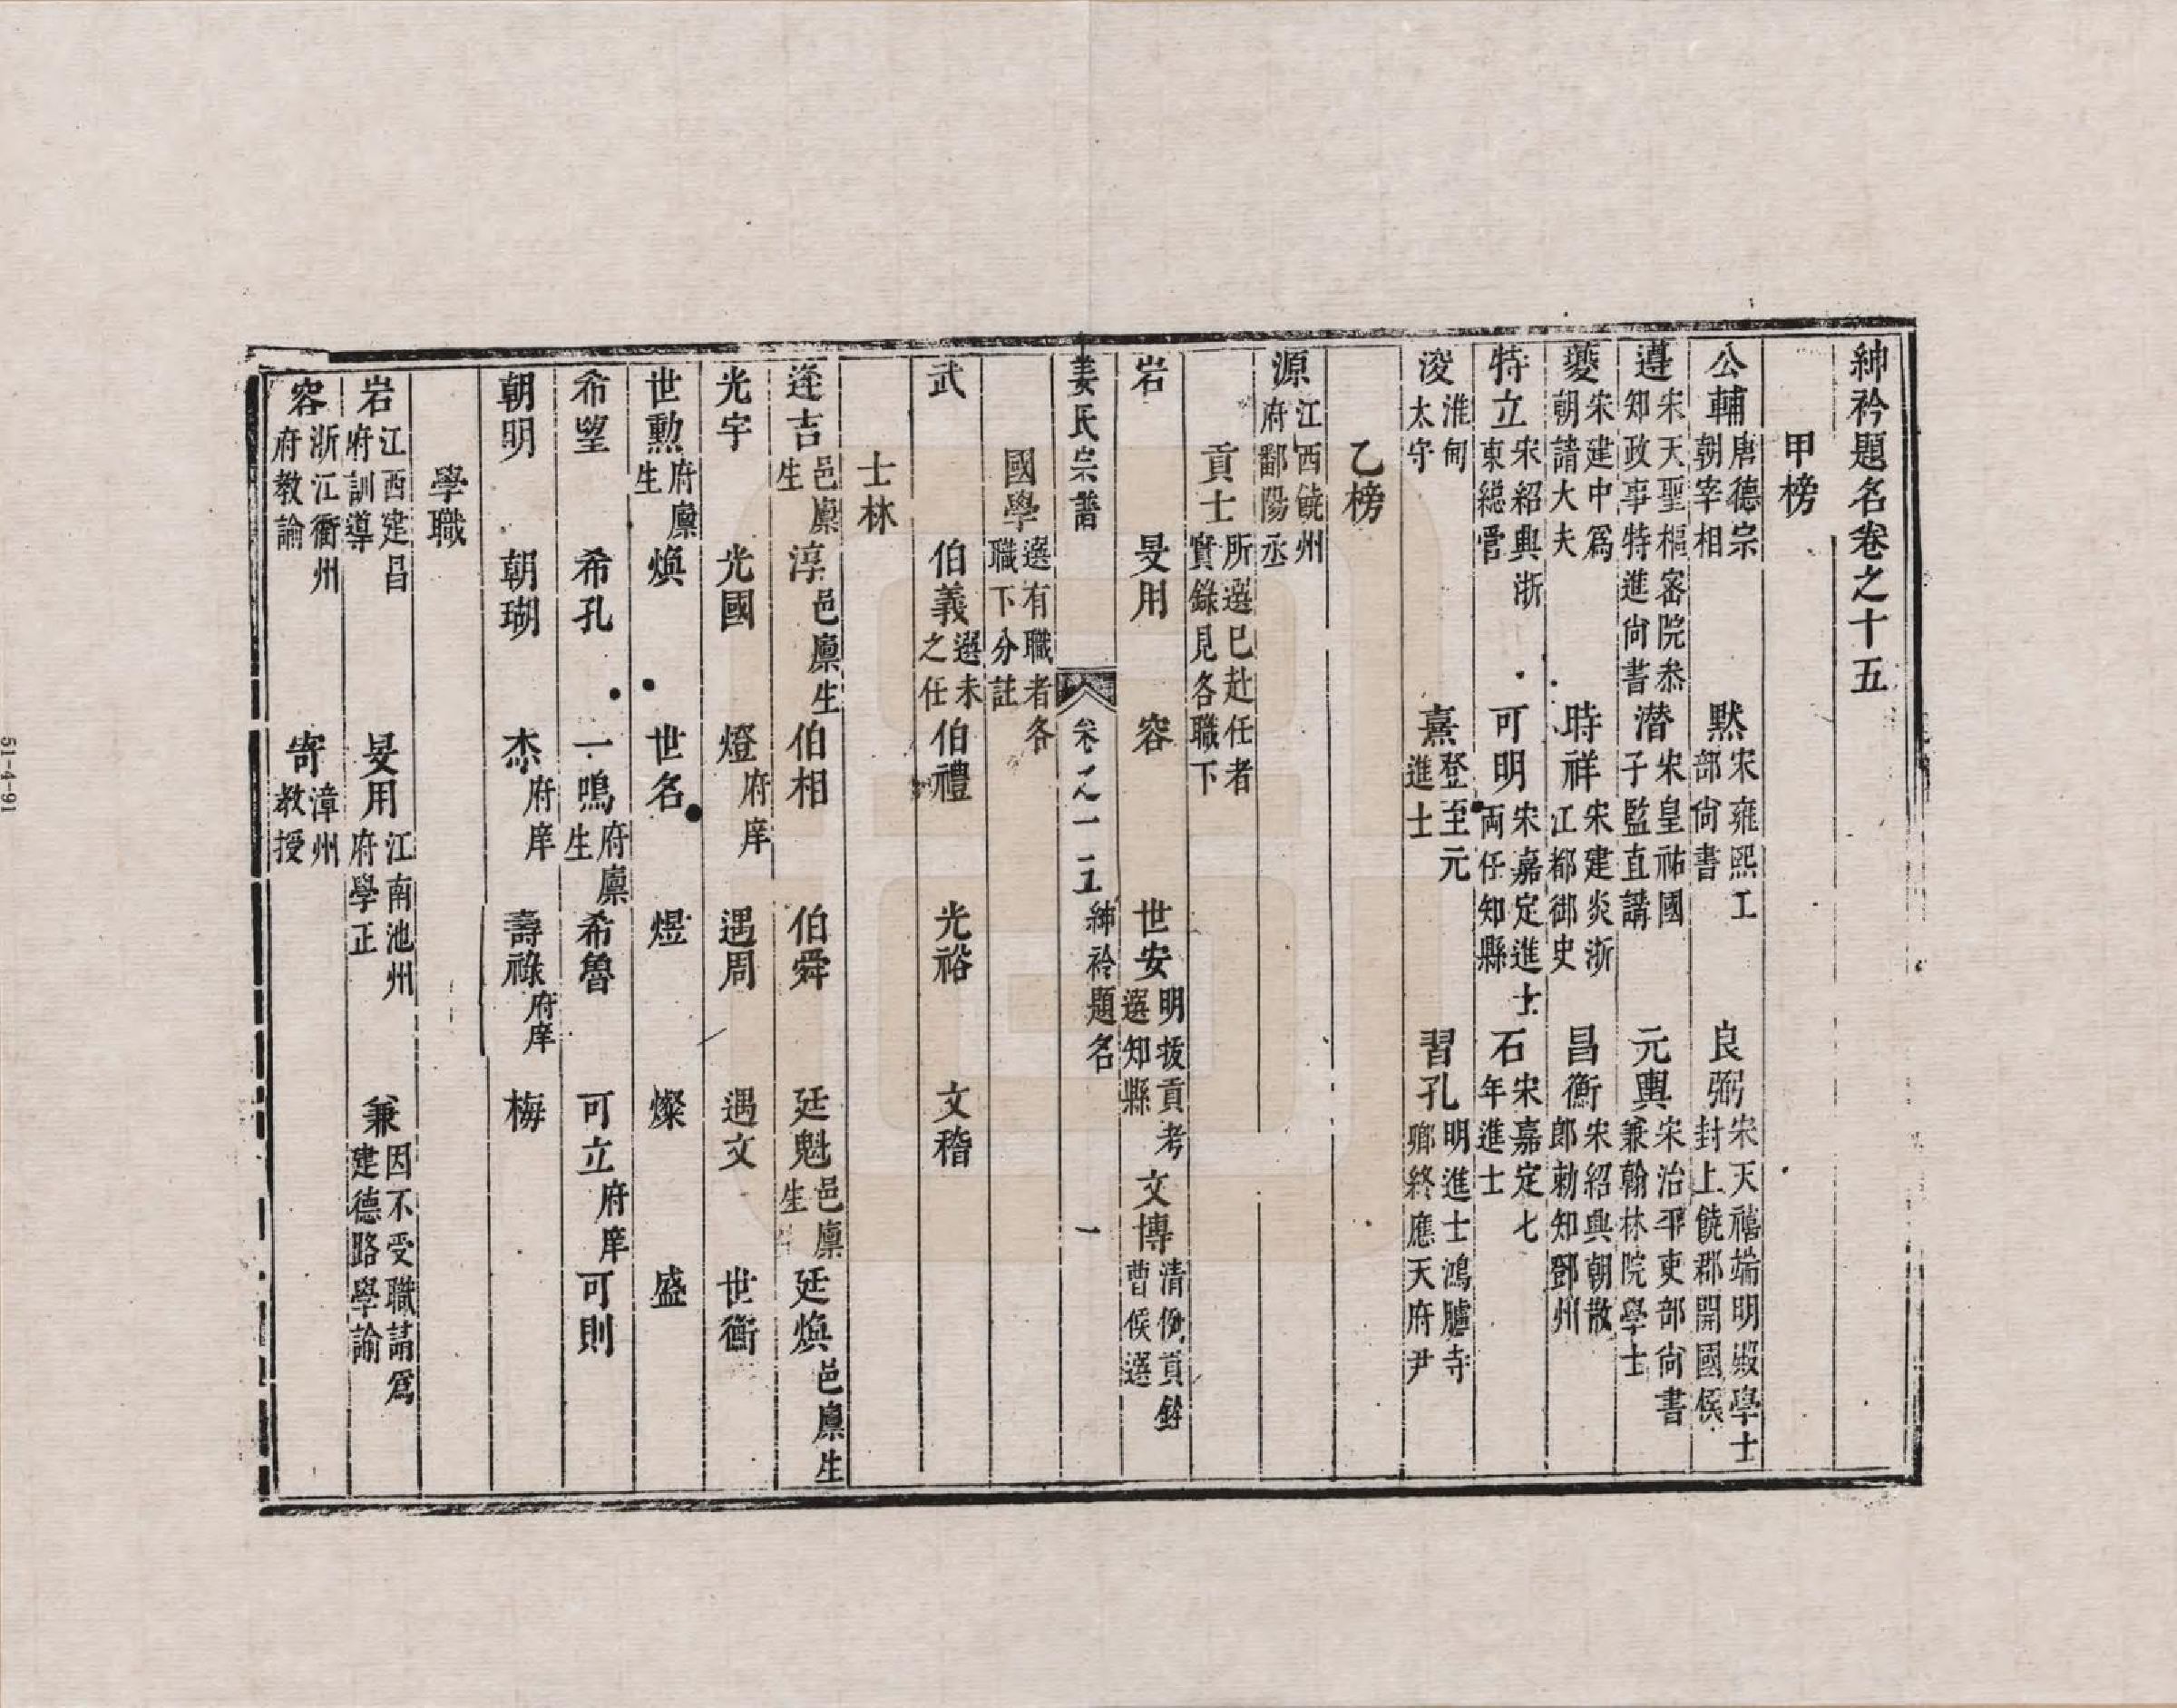 紳衿題名卷之十五
甲榜
公輔唐德宗朝宰相 默宋雍熙工部尙書 良弼宋天禧端明殿學士封上饒郡開國侯
遵宋天聖樞密院叅知政事特進尙書 潛宋皇祐國子監直講 元輿宋治平吏部尙書兼翰林院學士
夔宋建中爲朝請大夫 時祥宋建炎浙江都御史 昌衡宋紹興朝散郎勅知鄧州
特立宋紹興浙東總管 可明宋嘉定進士両任知縣 石宋嘉定七年進士
浚淮甸太守 熹登至元進士 習孔明進士鴻臚寺卿終應天府尹
乙榜
源江西饒州府鄱陽丞
貢士所選已赴任者實錄見各職下
岩 旻用 容 世安明拔貢考選知縣 文博清例貢銓曹候選
姜氏宗譜 卷之一五 紳衿題名 一
國學選有職者各職下分註
武 伯義選未之任 伯禮 光裕 文稽
士林
逢吉邑廪生 淳邑廪生 伯相 伯舜 廷魁邑廪生 廷煥邑廪生
光宇 光國 燈府庠 遇周 遇文 世衡
世勲府廪生 煥 世名 煜 燦 盛
希望 希孔 一鳴府廪生 希魯 可立府庠 可則
朝明 朝瑚 杰府庠 壽祿府庠 梅
學職
岩江西建昌府訓導 旻用江南池州府學正 兼因不受職請爲建德路學諭
容浙江衢州府教諭 寄漳州教授
51-4-91